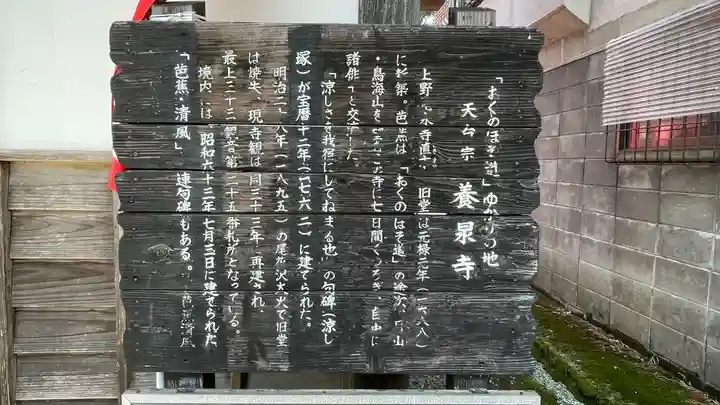 「おくのほそ道」ゆかりの地
天台宗 養泉寺
上野 寺直 旧堂 は元禄元年(一六八八)
に 築。芭蕉は「おくのほそ道」の途次、月山
・鳥海山を 寺に七日間くつろぎ、自由に
諸俳 と交流した。
「涼しさを我宿にしてねまる也」の句碑(涼し
塚)が宝暦十二年(一七六二)に建てられた。
明治二十八年(一八九五)の尾花沢大火で旧堂
は焼失、現寺観は同三十三年、再建され、
最上三十三観音第二十五番札所となっている。
境内には、昭和六十三年七月三日に建てられた
「芭蕉・清風」連句碑もある。 芭蕉清風